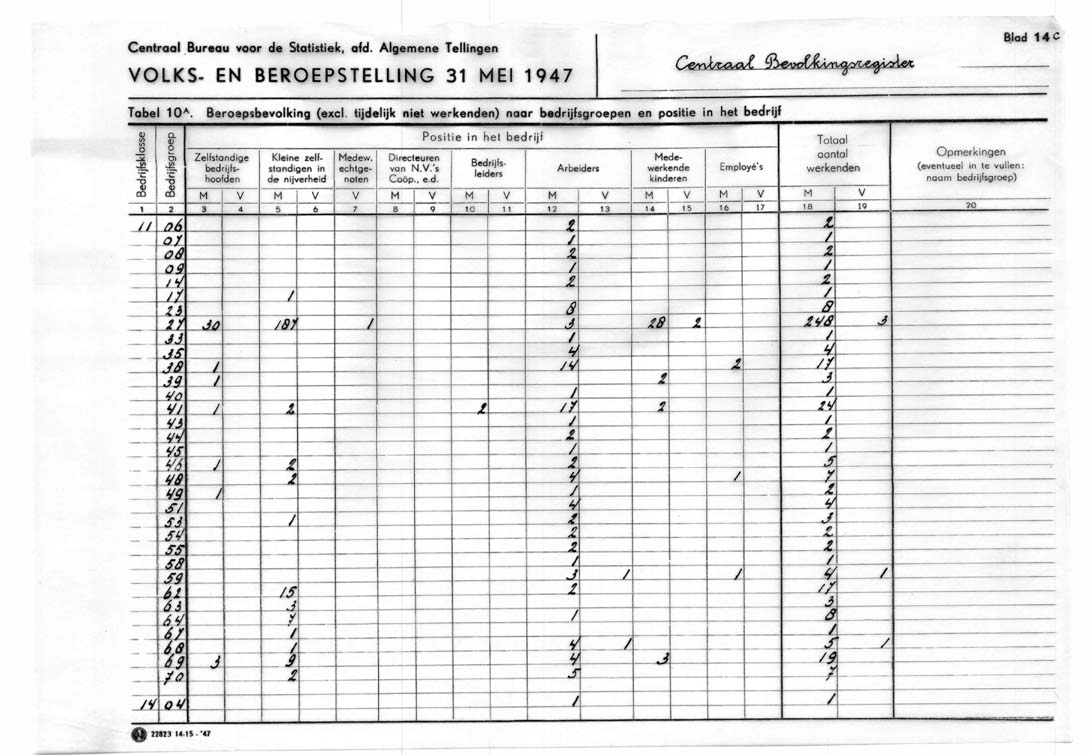 Blad 14 C
Centraal Bureau voor de Statistiek, afd. Algemene Tellingen
VOLKS- EN BEROEPSTELLING 31 MEI 1947
Centraal Bevolkingsregister
Tabel 10A. Beroepsbevolking (excl. tijdelijk niet werkenden) naar bedrijfsgroepen en positie in het bedrijf
Bedrijfsklasse Bedrijfsgroep Positie in het bedrijf Totaal aantal werkenden Opmerkingen (eventueel in te vullen: naam bedrijfsgroep)
Zelfstandige bedrijfs- hoofden Kleine zelf- standigen in de nijverheid Medew. echtge- noten Directeuren van N.V.'s Coöp., e.d. Bedrijfs- leiders Arbeiders Mede- werkende kinderen Employé's
M V M V V M V M V M V M V M V M V
1 2 3 4 5 6 7 8 9 10 11 12 13 14 15 16 17 18 19 20
11 06 2 2
07 1 1
08 2 2
09 1 1
14 2 2
17 1 1
23 8 8
27 30 187 1 3 28 2 248 3
33 1 1
35 4 4
38 1 14 2 17
39 1 2 3
40 1 1
41 1 2 2 17 2 24
43 1 1
44 2 2
45 1 1
46 1 2 2 5
48 2 4 1 7
49 1 1 2
51 4 4
53 1 2 3
54 2 2
55 2 2
58 1 1
59 3 1 1 4 1
62 15 2 17
63 3 3
64 7 1 8
67 1 1
68 1 4 1 5 1
69 3 9 4 3 19
70 2 5 7
14 04 1 1
22823 14-15 - '47